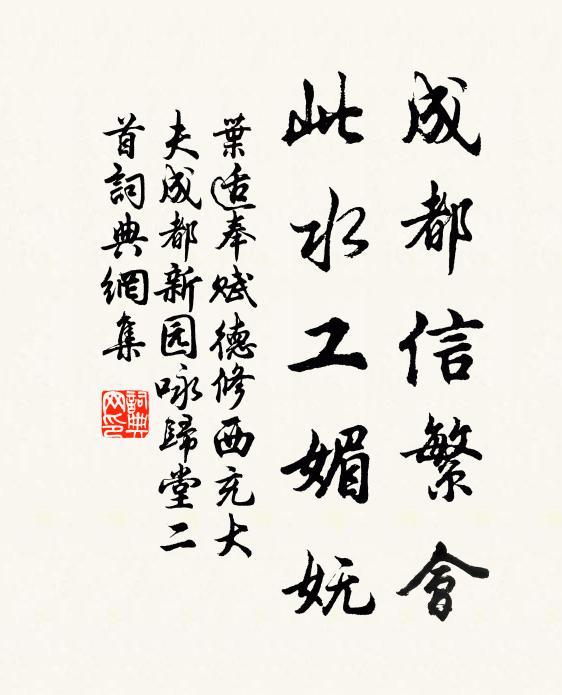 成都信繁會
此水工媚妩
葉适奉赋德修西充大
夫成都新园咏歸堂二
首詞典網集
詞典
网印